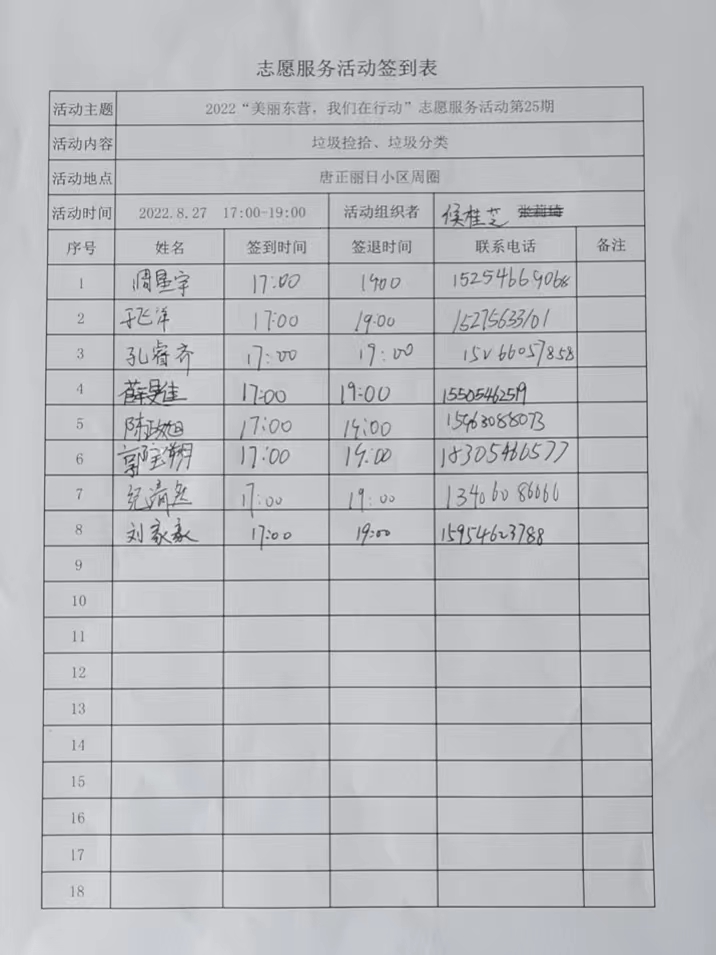 志愿服务活动签到表
活动主题 2022“美丽东营，我们在行动”志愿服务活动第25期
活动内容 垃圾捡拾、垃圾分类
活动地点 唐正丽日小区周圈
活动时间 2022.8.27 17:00-19:00 活动组织者 侯桂芝
序号 姓名 签到时间 签退时间 联系电话 备注
1 周星宇 17:00 1900 15254669068
2 于飞洋 17:00 19:00 15275633101
3 孔睿齐 17:00 19:00 15266057858
4 17:00 19:00 15505462519
5 陈政旭 17:00 19:00 15963088073
6 郭宝翔 17:00 19:00 18305466577
7 纪清然 17:00 19:00 13406086066
8 刘家豪 17:00 19:00 15954623788
9
10
11
12
13
14
15
16
17
18